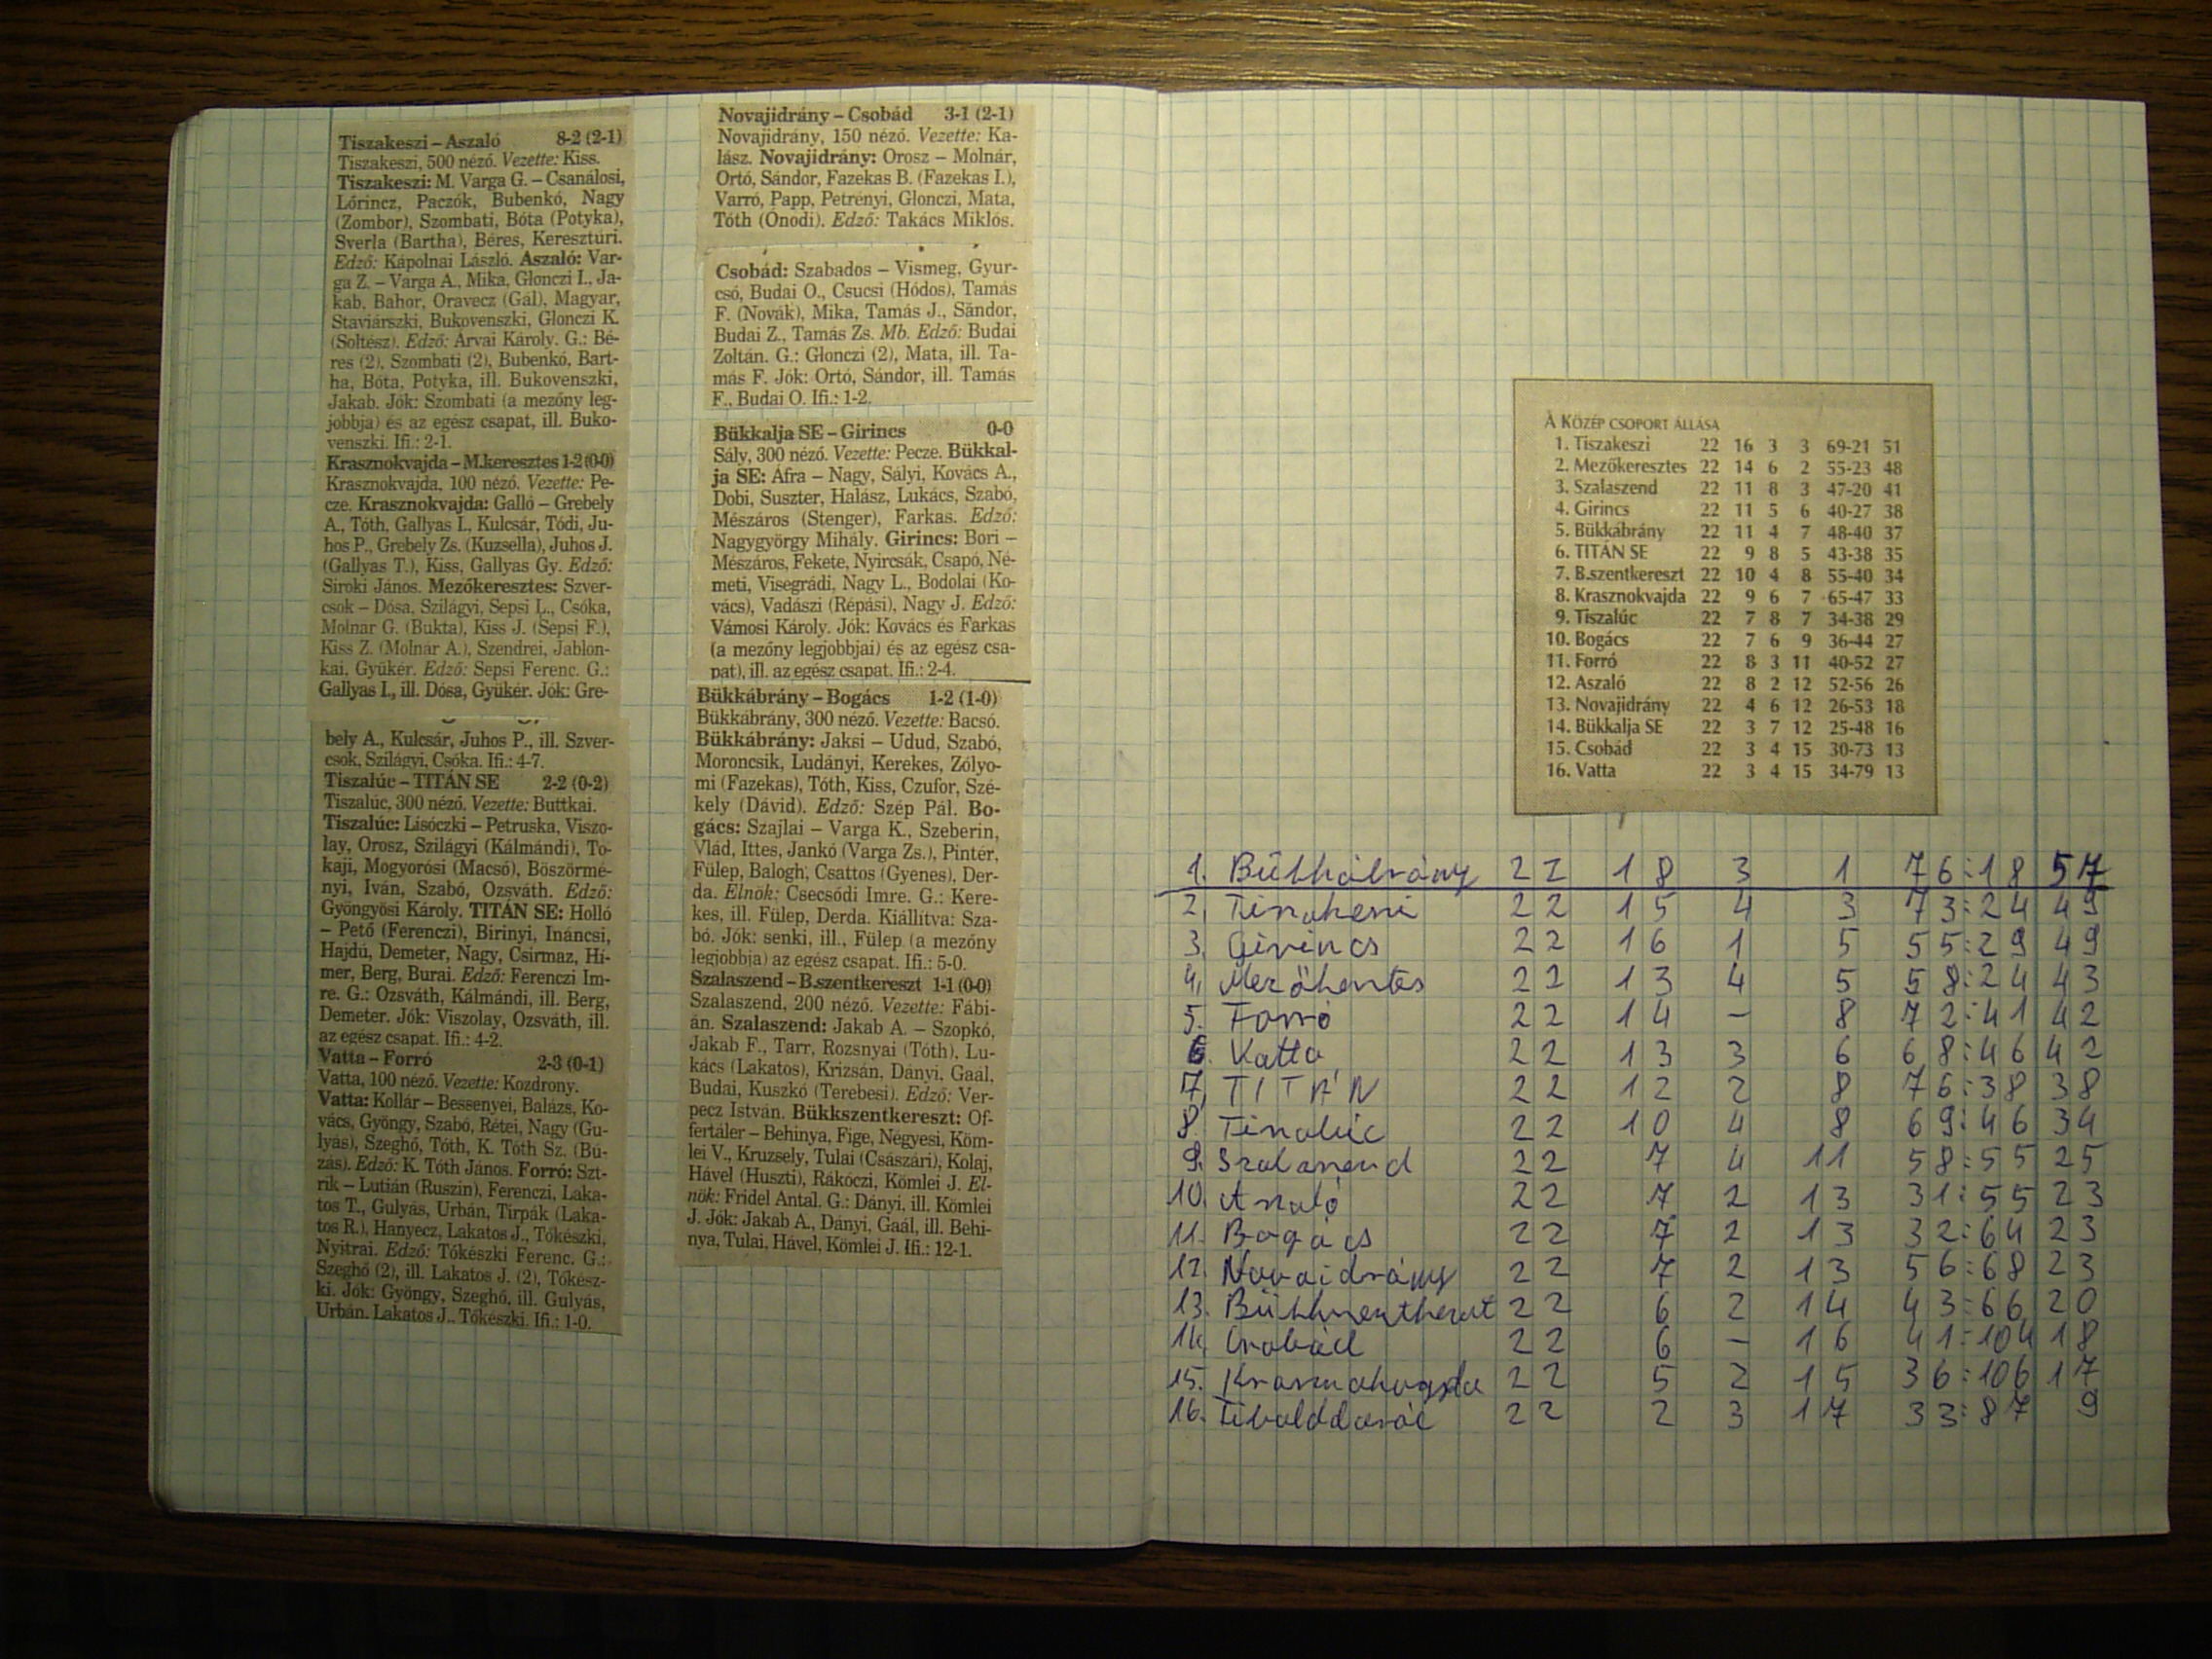 Tiszakeszi – Aszaló 8-2 (2-1)
Tiszakeszi, 500 néző. Vezette: Kiss.
Tiszakeszi: M. Varga G. – Csanálosi,
Lőrincz, Paczók, Bubenkó, Nagy
(Zombor), Szombati, Bóta (Potyka),
Sverla (Bartha), Béres, Keresztúri.
Edző: Kápolnai László. Aszaló: Var-
ga Z. – Varga A., Mika, Glonczi I., Ja-
kab, Bahor, Oravecz (Gál), Magyar,
Staviárszki, Bukovenszki, Glonczi K.
(Soltész). Edző: Árvai Károly. G.: Bé-
res (2), Szombati (2), Bubenkó, Bart-
ha, Bóta, Potyka, ill. Bukovenszki,
Jakab. Jók: Szombati (a mezőny leg-
jobbja) és az egész csapat, ill. Buko-
venszki. Ifi.: 2-1.
Krasznokvajda – M.keresztes 1-2 (0-0)
Krasznokvajda, 100 néző. Vezette: Pe-
cze. Krasznokvajda: Galló – Grebely
A., Tóth, Gallyas I., Kulcsár, Tódi, Ju-
hos P., Grebely Zs. (Kuzsella), Juhos J.
(Gallyas T.), Kiss, Gallyas Gy. Edző:
Siroki János. Mezőkeresztes: Szver-
csok – Dósa, Szilágyi, Sepsi L., Csóka,
Molnár G. (Bukta), Kiss J. (Sepsi F.),
Kiss Z. (Molnár A.), Szendrei, Jablon-
kai, Gyükér. Edző: Sepsi Ferenc. G.:
Gallyas I., ill. Dósa, Gyükér. Jók: Gre-
bely A., Kulcsár, Juhos P., ill. Szver-
csok, Szilágyi, Csóka. Ifi.: 4-7.
Tiszalúc – TITÁN SE 2-2 (0-2)
Tiszalúc, 300 néző. Vezette: Buttkai.
Tiszalúc: Lisóczki – Petruska, Viszo-
lay, Orosz, Szilágyi (Kálmándi), To-
kaji, Mogyorósi (Macsó), Böszörmé-
nyi, Iván, Szabó, Ozsváth. Edző:
Gyöngyösi Károly. TITÁN SE: Holló
– Pető (Ferenczi), Birinyi, Ináncsi,
Hajdú, Demeter, Nagy, Csirmaz, Hi-
mer, Berg, Burai. Edző: Ferenczi Im-
re. G.: Ozsváth, Kálmándi, ill. Berg,
Demeter. Jók: Viszolay, Ozsváth, ill.
az egész csapat. Ifi.: 4-2.
Vatta – Forró 2-3 (0-1)
Vatta, 100 néző. Vezette: Kozdrony.
Vatta: Kollár – Bessenyei, Balázs, Ko-
vács, Gyöngy, Szabó, Rétei, Nagy (Gu-
lyás), Szeghő, Tóth, K. Tóth Sz. (Bú-
zás). Edző: K. Tóth János. Forró: Szt-
rik – Lutián (Ruszin), Ferenczi, Laka-
tos T., Gulyás, Urbán, Tirpák (Laka-
tos R.), Hanyecz, Lakatos J., Tőkészki,
Nyitrai. Edző: Tőkészki Ferenc. G.:
Szeghő (2), ill. Lakatos J. (2), Tőkész-
ki. Jók: Gyöngy, Szeghő, ill. Gulyás,
Urbán, Lakatos J., Tőkészki. Ifi.: 1-0.
Novajidrány – Csobád 3-1 (2-1)
Novajidrány, 150 néző. Vezette: Ka-
lász. Novajidrány: Orosz – Molnár,
Ortó, Sándor, Fazekas B. (Fazekas I.),
Varró, Papp, Petrényi, Glonczi, Mata,
Tóth (Ónodi). Edző: Takács Miklós.
Csobád: Szabados – Vismeg, Gyur-
csó, Budai O., Csucsi (Hódos), Tamás
F. (Novák), Mika, Tamás J., Sándor,
Budai Z., Tamás Zs. Mb. Edző: Budai
Zoltán. G.: Glonczi (2), Mata, ill. Ta-
más F. Jók: Ortó, Sándor, ill. Tamás
F., Budai O. Ifi.: 1-2.
Bükkalja SE – Girincs 0-0
Sály, 300 néző. Vezette: Pecze. Bükkal-
ja SE: Áfra – Nagy, Sályi, Kovács A.,
Dobi, Suszter, Halász, Lukács, Szabó,
Mészáros (Stenger), Farkas. Edző:
Nagygyörgy Mihály. Girincs: Bori –
Mészáros, Fekete, Nyircsák, Csapó, Né-
meti, Visegrádi, Nagy L., Bodolai (Ko-
vács), Vadászi (Répási), Nagy J. Edző:
Vámosi Károly. Jók: Kovács és Farkas
(a mezőny legjobbjai) és az egész csa-
pat), ill. az egész csapat. Ifi.: 2-4.
Bükkábrány – Bogács 1-2 (1-0)
Bükkábrány, 300 néző. Vezette: Bacsó.
Bükkábrány: Jaksi – Udud, Szabó,
Moroncsik, Ludányi, Kerekes, Zólyo-
mi (Fazekas), Tóth, Kiss, Czufor, Szé-
kely (Dávid). Edző: Szép Pál. Bo-
gács: Szajlai – Varga K., Szeberin,
Vlád, Ittes, Jankó (Varga Zs.), Pintér,
Fülep, Balogh, Csattos (Gyenes), Der-
da. Elnök: Csecsődi Imre. G.: Kere-
kes, ill. Fülep, Derda. Kiállítva: Sza-
bó. Jók: senki, ill., Fülep (a mezőny
legjobbja) az egész csapat. Ifi.: 5-0.
Szalaszend – B.szentkereszt 1-1 (0-0)
Szalaszend, 200 néző. Vezette: Fábi-
án. Szalaszend: Jakab A. – Szopkó,
Jakab F., Tarr, Rozsnyai (Tóth), Lu-
kács (Lakatos), Krizsán, Dányi, Gaál,
Budai, Kuszkó (Terebesi). Edző: Ver-
pecz István. Bükkszentkereszt: Of-
fertáler – Behinya, Fige, Négyesi, Köm-
lei V., Kruzsely, Tulai (Császári), Kolaj,
Hável (Huszti), Rákóczi, Kömlei J. El-
nök: Fridel Antal. G.: Dányi, ill. Kömlei
J. Jók: Jakab A., Dányi, Gaál, ill. Behi-
nya, Tulai, Hável, Kömlei J. Ifi.: 12-1.
A KÖZÉP CSOPORT ÁLLÁSA
1. Tiszakeszi 22 16 3 3 69-21 51
2. Mezőkeresztes 22 14 6 2 55-23 48
3. Szalaszend 22 11 8 3 47-20 41
4. Girincs 22 11 5 6 40-27 38
5. Bükkábrány 22 11 4 7 48-40 37
6. TITÁN SE 22 9 8 5 43-38 35
7. B.szentkereszt 22 10 4 8 55-40 34
8. Krasznokvajda 22 9 6 7 65-47 33
9. Tiszalúc 22 7 8 7 34-38 29
10. Bogács 22 7 6 9 36-44 27
11. Forró 22 8 3 11 40-52 27
12. Aszaló 22 8 2 12 52-56 26
13. Novajidrány 22 4 6 12 26-53 18
14. Bükkalja SE 22 3 7 12 25-48 16
15. Csobád 22 3 4 15 30-73 13
16. Vatta 22 3 4 15 34-79 13
1. Bükkábrány 22 18 3 1 76:18 57
2. Tiszakeszi 22 15 4 3 73:24 49
3. Girincs 22 16 1 5 55:29 49
4. Mezőkeresztes 22 13 4 5 58:24 43
5. Forró 22 14 – 8 72:41 42
6. Vatta 22 13 3 6 68:46 42
7. TITÁN 22 12 2 8 76:38 38
8. Tiszalúc 22 10 4 8 69:46 34
9. Szalaszend 22 7 4 11 58:55 25
10. Aszaló 22 7 2 13 31:55 23
11. Bogács 22 7 2 13 32:64 23
12. Novaidrány 22 7 2 13 56:68 23
13. Bükkszentkereszt 22 6 2 14 43:66 20
14. Csobád 22 6 – 16 41:104 18
15. Krasznokvajda 22 5 2 15 36:106 17
16. Tibolddaróc 22 2 3 17 33:87 9